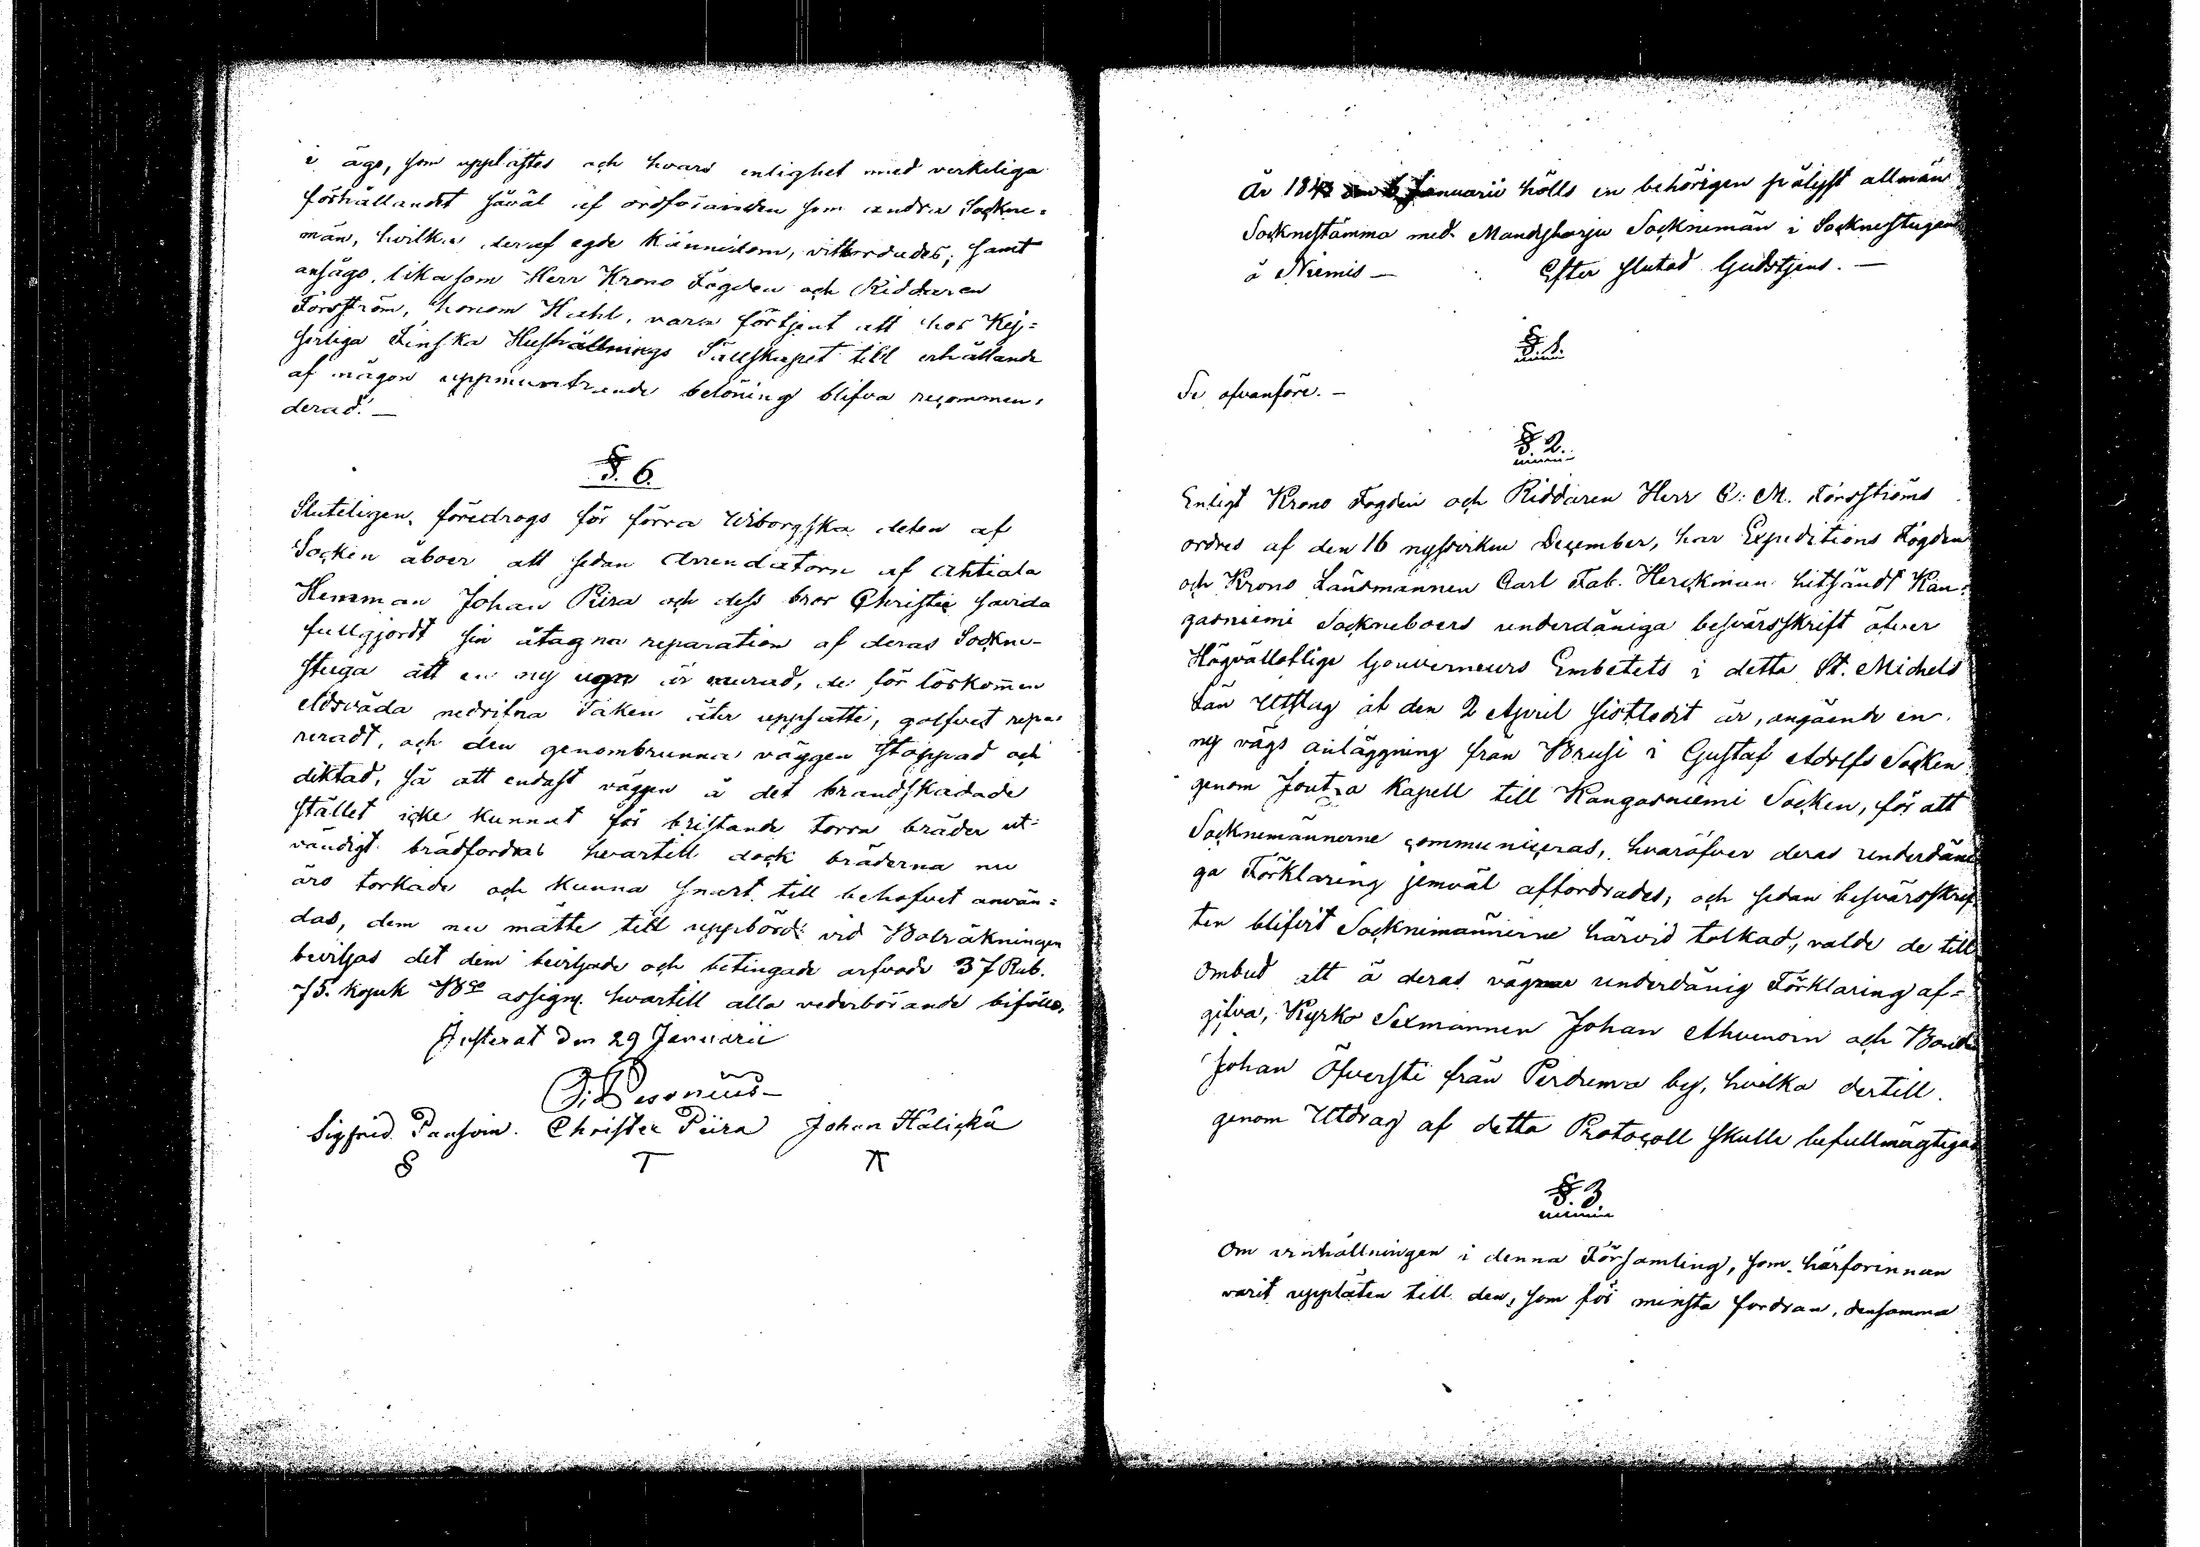 i ägo, som upplästes och hvars enlighet med verkeliga
förhållandet såväl af ordföranden som andra Sockne-
män, hvilka deraf egde kännedom, vitsordades; samt
ansågo, likasom Herr Krono Fogden och Riddaren
Forsström, honom Kuhl, vara förtjent att hos Kej-
serliga Finska Hushållnings Sällskapet till erhållande
af någon uppmuntrande belöning blifva recommen-
derad. —
§. 6.
Sluteligen, föredrogs för förra Wiborgska delen af
Socken åboer att sedan Arrendatorn af Ahtiala
Hemman Johan Piira och dess bror Christer Havida
fullgjordt sin åtagna reparation af deras Sockne-
stuga att en ny ugn är murad, de för löskommen
eldsvåda nedrifna taken åter uppsatte, golfvet repa-
reradt, och den genombrunna väggen stoppad och
diktad, så att endast väggen å det brandskadade
stället icke kunnat för bristande torra bräder ut-
vändigt brädfordras hvartill dock bräderna nu
äro torkade och kunna snart till behofvet använ-
das, dem nu måtte till uppbörd vid Bolräkningen
beviljas det dem beviljade och betingade arfvode 37 Rub.
75. kopek B:co assign. hvartill alla vederbörande biföllo.
Justerat den 29 Januarii
Sigfrid Pansoin. Christer Piira Johan Hälickä
År 1843 den 6 Januarii hölls en behörigen pålyst allmän
Socknestämma med Mandsharju Socknemän i Socknestugan
å Niemis — Efter slutad Gudstjenst. —
§ 1.
Se ofvanföre. —
§. 2.
Enligt Krono Fogden och Riddaren Herr C. M. Forsströms
ordres af den 16 nyssvikne December, har Expeditions Fogden
och Krono Länsmannen Carl Fab. Herckman hitsändt Kan-
gasniemi Sockneboers underdåniga besvärsskrift öfver
Högvällofliga Gouverneurs Embetets i detta St. Michels
Län Utslag af den 2 April sistledit år, angående en
ny vägs anläggning från Brusi i Gustaf Adolfs Socken
genom Joutsa Kapell till Kangasniemi Socken, för att
Socknemännerne communiceras, hvaröfver deras underdåni
ga Förklaring jemväl affordrades, och sedan besvärsskrif
ten blifvit Socknemännerne härvid tolkad, valde de till
Ombud att å deras vägnar underdånig Förklaring af-
gifva, Kyrko Sexmannen Johan Ahvenoin och Bonden
Johan Öfversti från Pertuma by, hvilka dertill
genom Utdrag af detta Protocoll skulle befullmägtigas
§. 3.
Om hållningen i denna Församling, som härförinnan
varit uppläten till den, som för minsta fordran, densamma